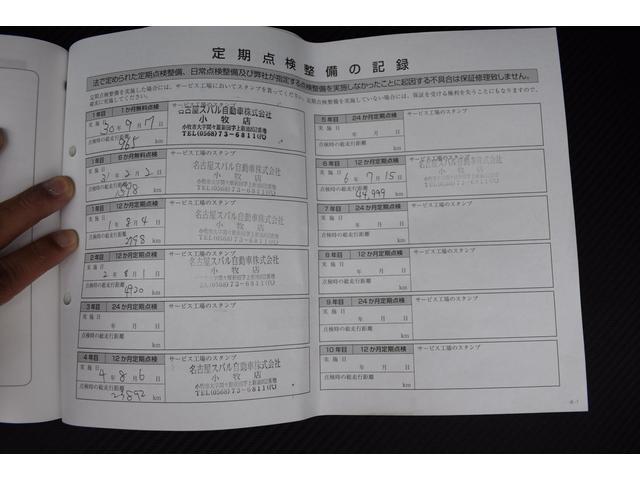 定期点検整備の記録
法で定められた定期点検整備、日常点検整備及び弊社が指定する点検整備を実施しなかったことに起因する不具合は保証修理致しません。
定期点検整備を実施した場合には、サービス工場においてスタンプを貰ってください。
点検整備を実施していない場合には、保証を受ける権利を失うこともありますので、
確実に実施してください。
1年目 1か月無料点検
実施日 30年9月17日
点検時の総走行距離
965 km
名古屋スバル自動車株式会社
小牧店
小牧市大字間々原新田字上新池952番地
TEL(0568)73-6811㈹
1年目 6か月無料点検 サービス工場のスタンプ
実施日 31年3月2日
点検時の総走行距離
km
名古屋スバル自動車株式会社
小牧店
1年目 12か月定期点検 サービス工場のスタンプ
実施日 1年8月4日
点検時の総走行距離
2798 km
名古屋スバル自動車株式会社
小牧店
TEL(0568)73-6811㈹
2年目 12か月定期点検 サービス工場のスタンプ
実施日 2年8月1日
点検時の総走行距離
4920 km
名古屋スバル自動車株式会社
小牧店
3年目 24か月定期点検 サービス工場のスタンプ
実施日 年 月 日
点検時の総走行距離 km
4年目 12か月定期点検 サービス工場のスタンプ
実施日 4年8月6日
点検時の総走行距離
23892 km
名古屋スバル自動車株式会社
小牧店
TEL(0568)73-6811㈹
5年目 24か月定期点検 サービス工場のスタンプ
実施日 年 月 日
点検時の総走行距離 km
6年目 12か月定期点検 サービス工場のスタンプ
実施日 6年7月15日
点検時の総走行距離
44,999 km
名古屋スバル自動車株式会社
小牧店
7年目 24か月定期点検 サービス工場のスタンプ
実施日 年 月 日
点検時の総走行距離 km
8年目 12か月定期点検 サービス工場のスタンプ
実施日 年 月 日
点検時の総走行距離 km
9年目 24か月定期点検 サービス工場のスタンプ
実施日 年 月 日
点検時の総走行距離 km
10年目 12か月定期点検 サービス工場のスタンプ
実施日 年 月 日
点検時の総走行距離 km